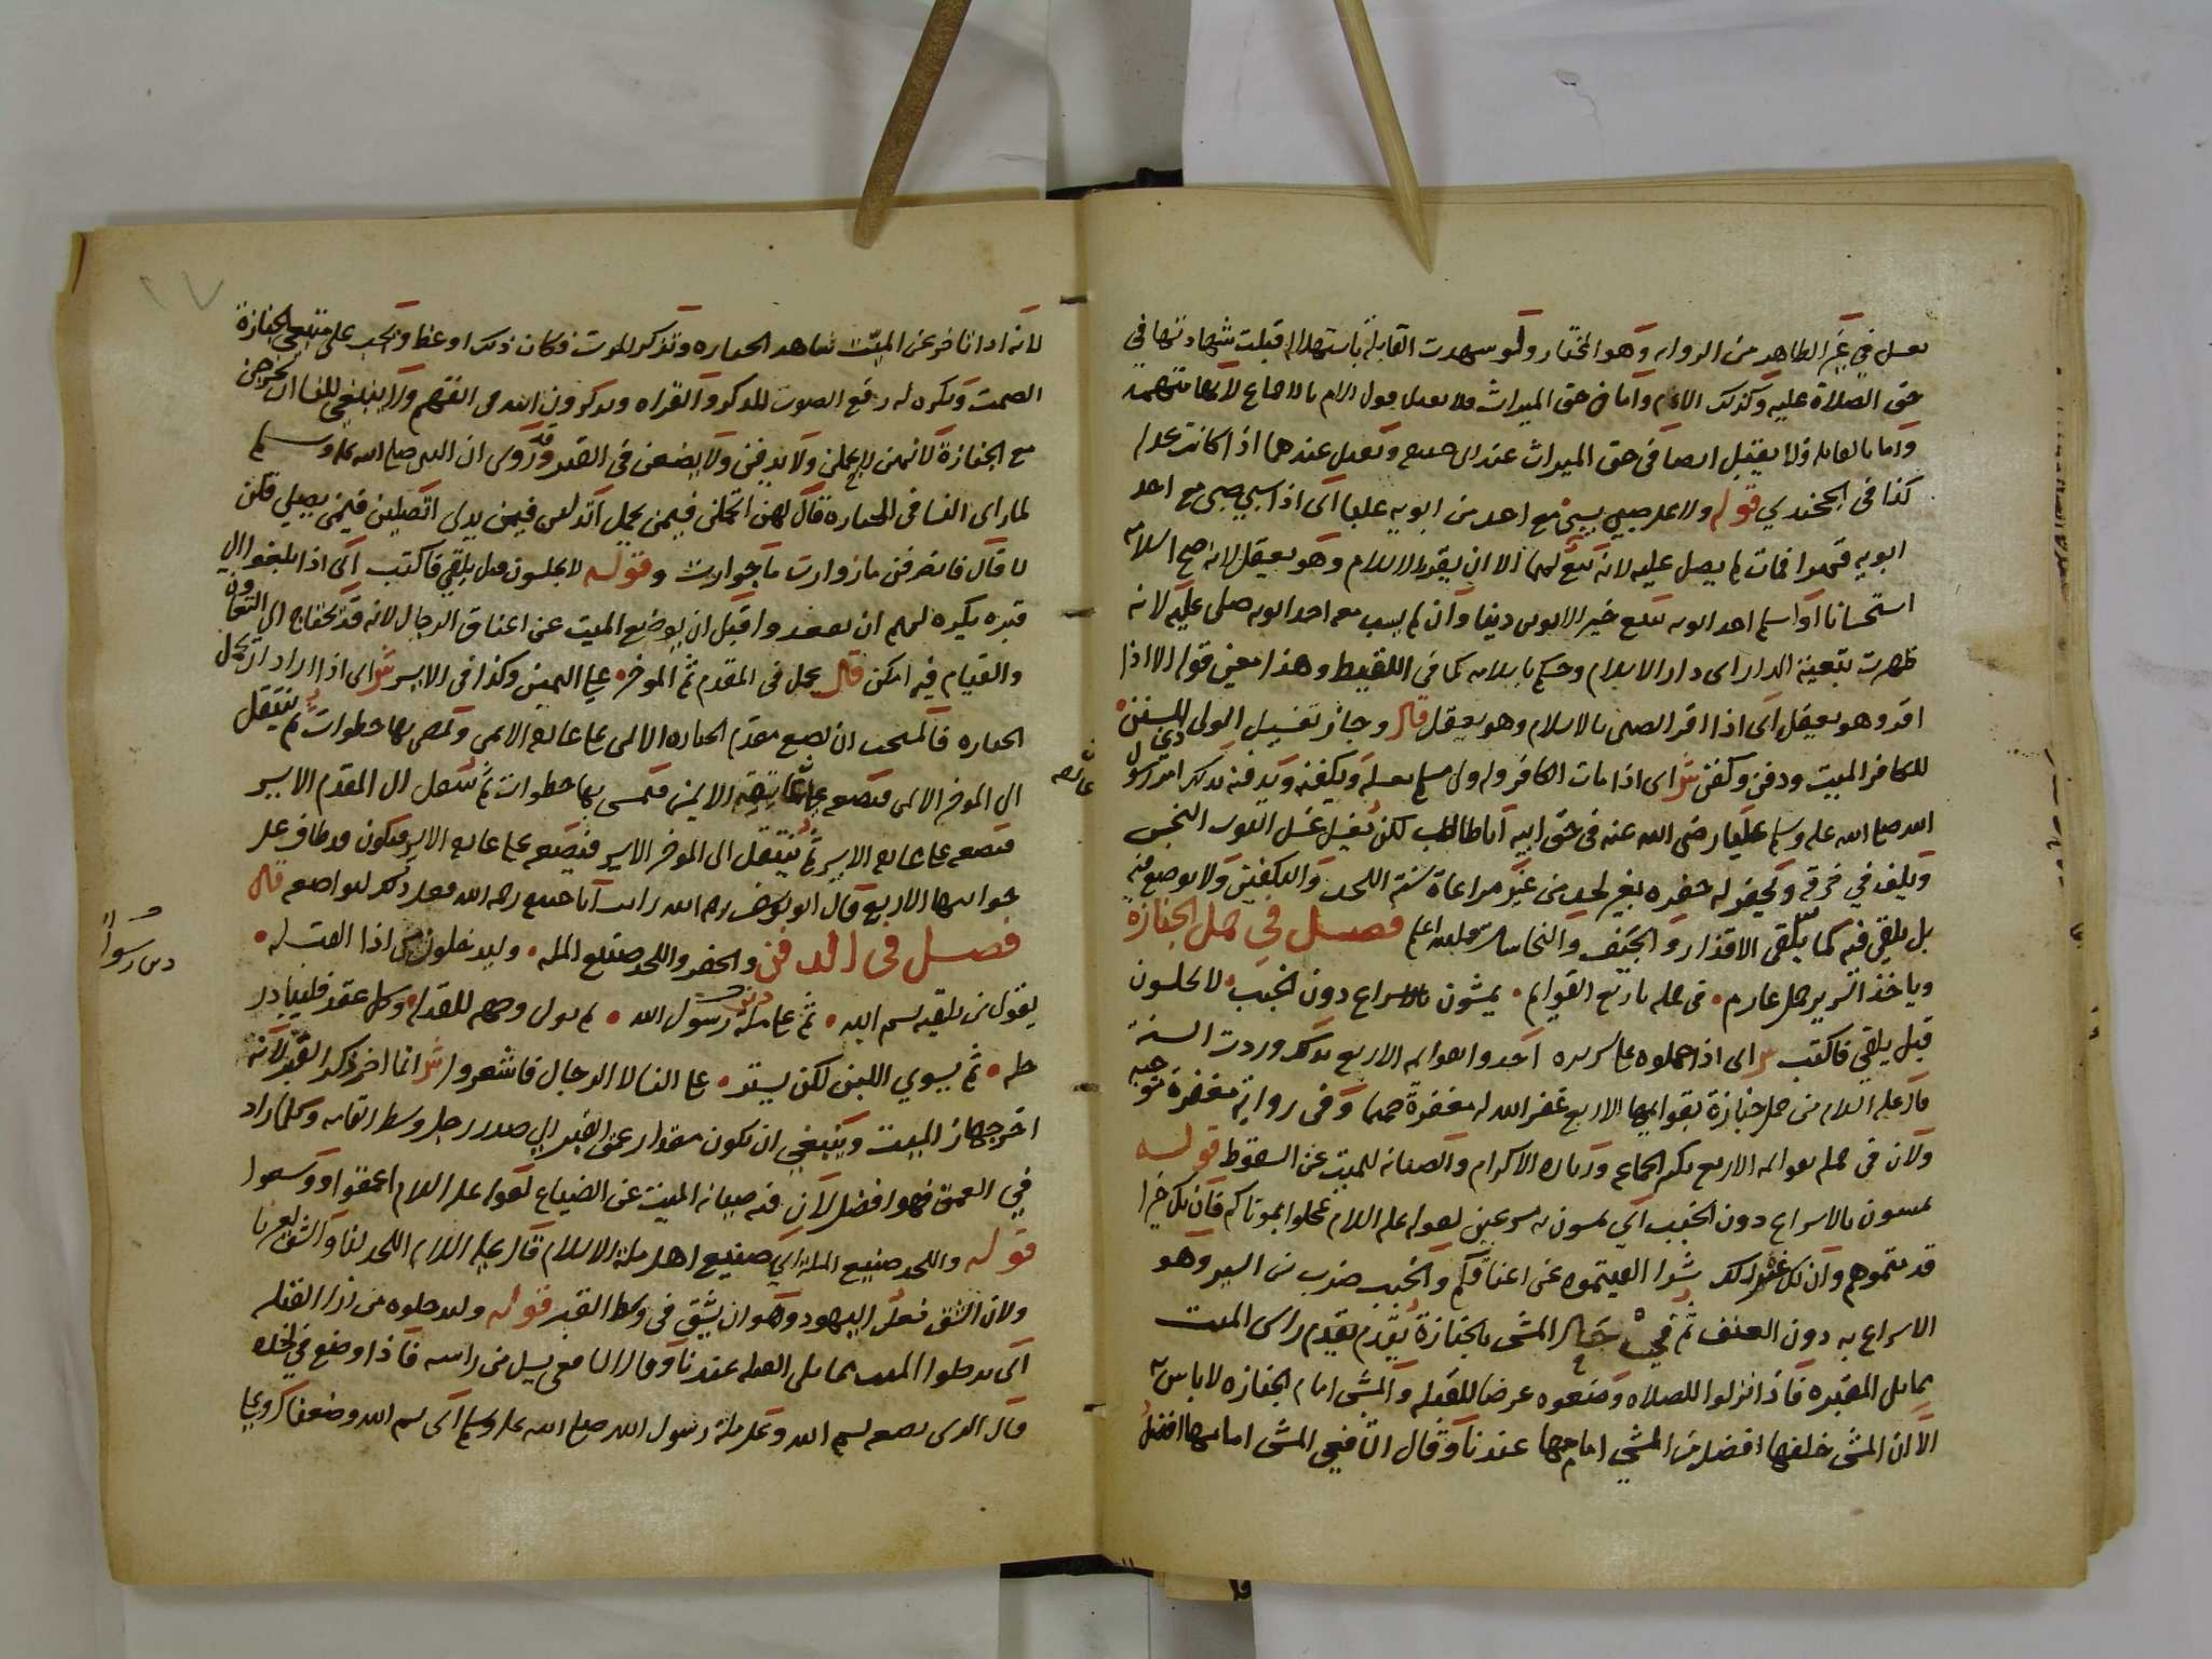 في غير الظاهر من الروايه وهو المختار ولو شهدت القابلة باستهلاله قبلت شهادتها في
حق الصلاة عليه وكذلك الام واما في حق الميراث فلا يقبل قول الام بالاجماع لانها متهمة
واما القابله فلا يقبل ايضا في حق الميراث عند ابي حنيفه وتقبل عندهما اذا كانت عدله
كذا في الخجندي قوله ولا على صبي سبي مع احد من ابويه علما اي اذا سبي صبي مع احد
ابويه فمات لم يصل عليه لانه تبع لهما الا ان يقر بالاسلام وهو يعقل لانه صح اسلامه
استحسانا او اسلم احد ابويه لانه يتبع خير الابوين دينا وان لم يسب معه احد ابويه صلى عليه لانه
ظهرت تبعية الدار اي دار الاسلام وحكم باسلامه كما في اللقيط وهذا معنى قوله الا اذا
اقر وهو يعقل اي اذا اقر الصبي بالاسلام وهو يعقل قال وجاز تغسيل الولي المسلم
للكافر الميت ودفن وكفن ش اي اذا مات الكافر وله ولي مسلم يغسله ويكفنه ويدفنه بذلك امر رسول
الله صلى الله عليه وسلم عليا رضي الله عنه في حق ابيه ابا طالب لكن يغسل غسل الثوب النجس
ويلف في خرقة ويحفر له حفره بغير لحد من غير مراعاة سنة اللحد والتكفين ولا يوضع فيه
بل يلقى فيه كما تلقى الاقذار والجيف والنجاسات والله اعلم فصل في حمل الجنازة
وياخذ السرير حمل عارم • في حمله باربع القوايم • يمشون بالاسراع دون الخبب • لا يجلسون
قبل يلقى فاكتب ش اي اذا حملوه على سريره اخذوا بقوايمه الاربع بذلك وردت السنة
قال عليه السلام من حمل جنازة بقوايمها الاربع غفر الله له مغفرة حتما وفي رواية مغفرة موجبه
ولان في حمله بقوايمه الاربع تكثير الجماعه وزياده الاكرام والصيانه للميت عن السقوط قوله
يمشون بالاسراع دون الخبب اي يمشون به مسرعين لقوله عليه السلام عجلوا بموتاكم فان يك خيرا
قدمتموهم وان يك غير ذلك شرا القيتموه عن اعناقكم والخبب ضرب من السير وهو
الاسراع به دون العنف ثم في حال المشي بالجنازة يقدم تقدم راس الميت
مما يلي المقبره فاذا نزلوا للصلاه وضعوه عرضا للقبله والمشي امام الجنازه لا باس به
الا ان المشي خلفها افضل من المشي امامها عندنا وقال الشافعي المشي امامها افضل
لانه اذا تاخر عن الميت شاهد الجنازه وتذكر للموت فكان ذلك اوعظ ويجب على متبعي الجنازة
الصمت ويكره له رفع الصوت بالذكر والقراه ويذكرون الله في انفسهم ولا ينبغي للنسا ان يخرجن
مع الجنازة لانهن لا يحملن ولا يدفن ولا يضعن في القبر وقد روي ان النبي صلى الله عليه وسلم
لما راى النسا في الجنازه قال لهن اتحملن فيمن يحمل اتدلين فيمن يدلي اتصلين فيمن يصلي قلن
لا قال فانصرفن مازورات ماجورات وقوله لا يجلسون قبل يلقى فاكتب اي اذا بلغوا الى
قبره يكره لهم ان يقعدوا قبل ان يوضع الميت عن اعناق الرجال لانه قد يحتاج الى التعاون
والقيام فيه امكن قال يحمل في المقدم ثم الموخر • على اليمين وكذا في الايسر ش اي اذا اراد ان يحمل
الجنازه فالمستحب ان يضع مقدم الجنازه الايمن على عاتقه الايمن ويمشي بها خطوات ثم ينتقل
الى الموخر الايمن فيضعه على عاتقه الايمن فيمشي بها خطوات ثم ينتقل الى المقدم الايسر
فيضعه على عاتقه الايسر ثم ينتقل الى الموخر الايسر فيضعه على عاتقه الايسر فيكون قد طاف على
جوانبها الاربع قال ابو يوسف رحمه الله رايت ابا حنيفه رحمه الله فعل ذلك لتواضعه قال
فصل في الدفن والحفر واللحد صنيع المله • وليدخلون من اذا القبله •
يقول من يلقيه بسم الله • ثم على ملة رسول الله • ثم يولى وجهه للقبله • وكل عقد فليبادر
حله • ثم يسوي اللبن لكن يستر • على النسا لا الرجال فاشعروا ش انما اخر ذكر القبر لانه
اخر جهاز الميت وينبغي ان يكون مقدار عمق القبر الى صدر رجل وسط القامه وكلما زاد
في العمق فهو افضل لان فيه صيانه الميت عن الضياع لقوله عليه السلام اعمقوا ووسعوا
قوله واللحد صنيع المله اي صنيع اهل ملة الاسلام قال عليه السلام اللحد لنا والشق لغيرنا
ولان الشق فعل اليهود وهو ان يشق في وسط القبر قوله وليدخلوه من اذا القبله
اي يدخلوا الميت مما يلي القبله عندنا وقال الشافعي يسل من راسه فاذا وضع في لحده
قال الذي يضعه بسم الله وعلى ملة رسول الله صلى الله عليه وسلم اي بسم الله وضعناك وعلى